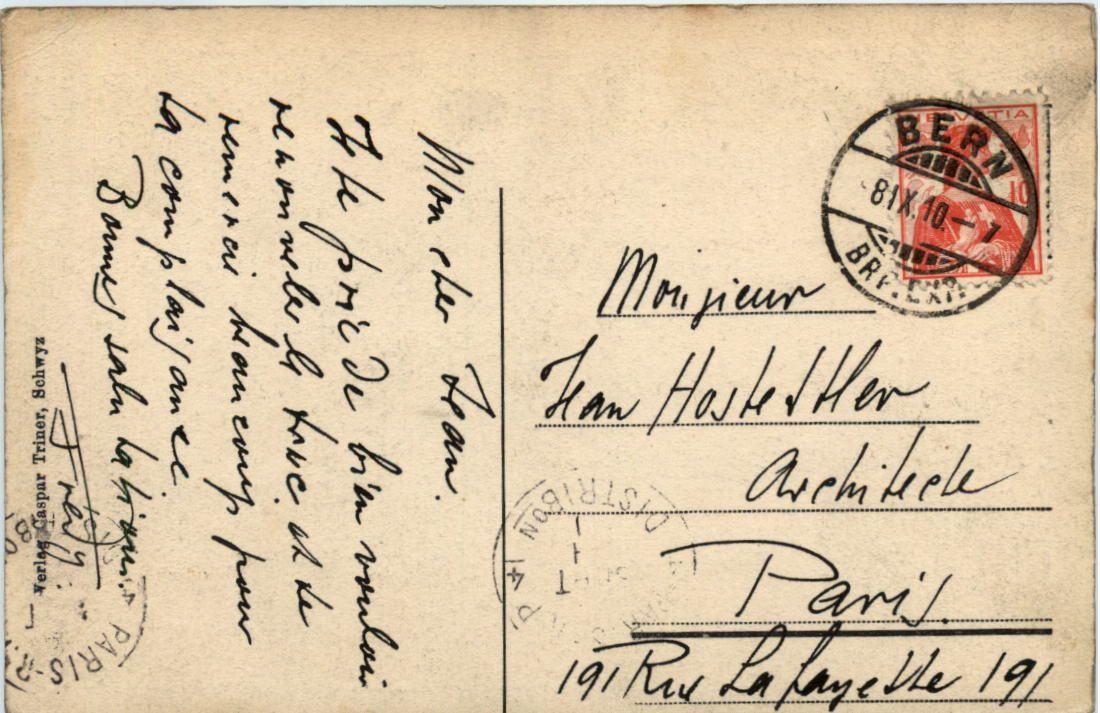 Mon cher Jean.
Je te prie de bien vouloir
renouveler le truc et te
remercie beaucoup pour
ta complaisance
Bonnes salutations.
Verlag Caspar Triner, Schwyz
HELVETIA
10
BERN
8.IX.10.–7
BRF. EXP.
Monsieur
Jean Hostettler
Architecte
Paris.
191 Rue Lafayette 191
DISTRIBON
PARIS